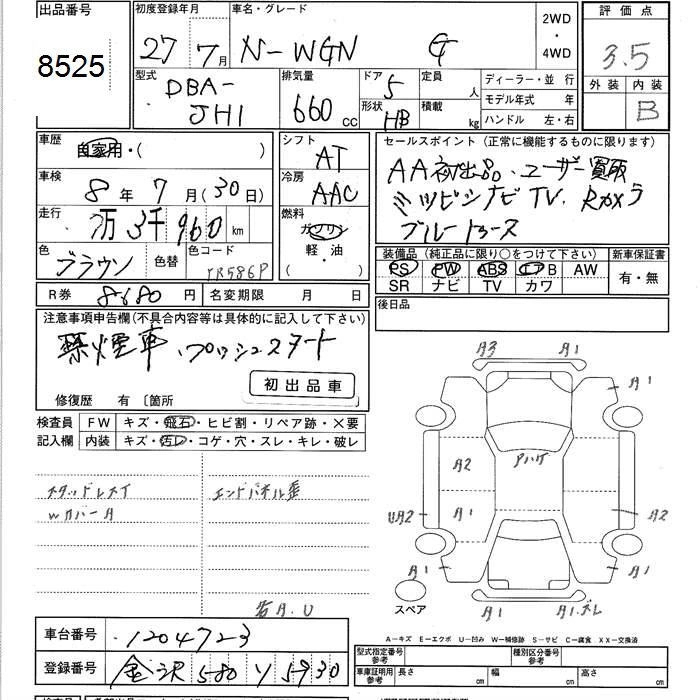 出品番号 初度登録年月 車名・グレード 2WD・4WD 評価点
8525 27年7月 N-WGN G 3.5
型式 DBA-JH1 排気量 660cc ドア 5 定員 人 形状 HB 積載 kg
ディーラー・並行
モデル年式 年
ハンドル 左・右
外装 内装
B
車歴 自家用・( )
シフト AT
車検 8年7月(30日)
冷房 AAC
走行 1万3千960km
燃料 ガソリン 軽・油 ( )
色 ブラウン 色替 色コード YR586P
R券 8680円 名変期限 月 日
セールスポイント(正常に機能するものに限ります)
AA初出品、ユーザー買取
ミツビシナビ TV、Rカメラ
ブルートゥース
装備品(純正品に限り○をつけて下さい) 新車保証書
PS PW ABS エアB AW 有・無
SR ナビ TV カワ
後日品
注意事項申告欄(不具合内容等は具体的に記入して下さい)
禁煙車、プッシュスタート
初出品車
修復歴 有 〔箇所
検査員記入欄 FW キズ・飛石・ヒビ割・リペア跡・×要
内装 キズ・汚レ・コゲ・穴・スレ・キレ・破レ
スタッドレスタイ エンドパネル歪
Wカバー A
省A.U
A3 A1
A1 A1
アハゲ
A2
UA2 A1 A2
A1 A1
A1 A1.ズレ
スペア
A-キズ E-エクボ U-凹み W-補修跡 S-サビ C-腐食 XX-交換済
車台番号 1204723
登録番号 金沢 580 ソ 5930
型式指定番号 参考 種別区分番号 参考
車庫証明用 参考 長さ cm 幅 cm 高さ cm